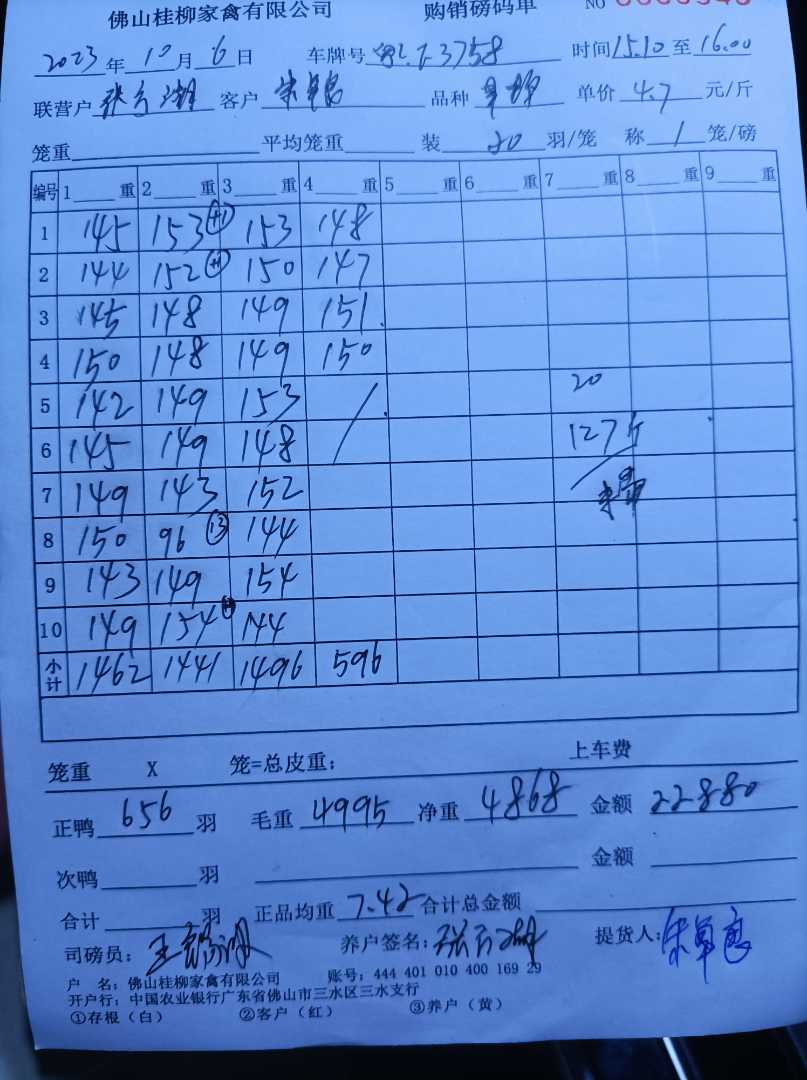 佛山桂柳家禽有限公司 购销磅码单 NO
2023年10月6日 车牌号 3758 时间15.10至16.00
联营户 客户 品种 单价4.7元/斤
笼重 平均笼重 装20羽/笼 称1笼/磅
编号 1 重 2 重 3 重 4 重 5 重 6 重 7 重 8 重 9 重
1 145 153(+1) 153 148
2 144 152(+1) 150 147
3 145 148 149 151.
4 150 148 149 150
5 142 149 153 / 20
6 145 149 148 127斤
7 149 143 152
8 150 96(13) 144
9 143 149 154
10 149 154 144
小计 1462 1441 1496 596
笼重 X 笼=总皮重: 上车费
正鸭656羽 毛重4995 净重4868 金额22880
次鸭 羽 金额
合计 羽 正品均重7.42 合计总金额
司磅员: 养户签名: 提货人:
户 名: 佛山桂柳家禽有限公司 账号: 444 401 010 400 169 29
开户行: 中国农业银行广东省佛山市三水区三水支行
①存根(白) ②客户(红) ③养户(黄)